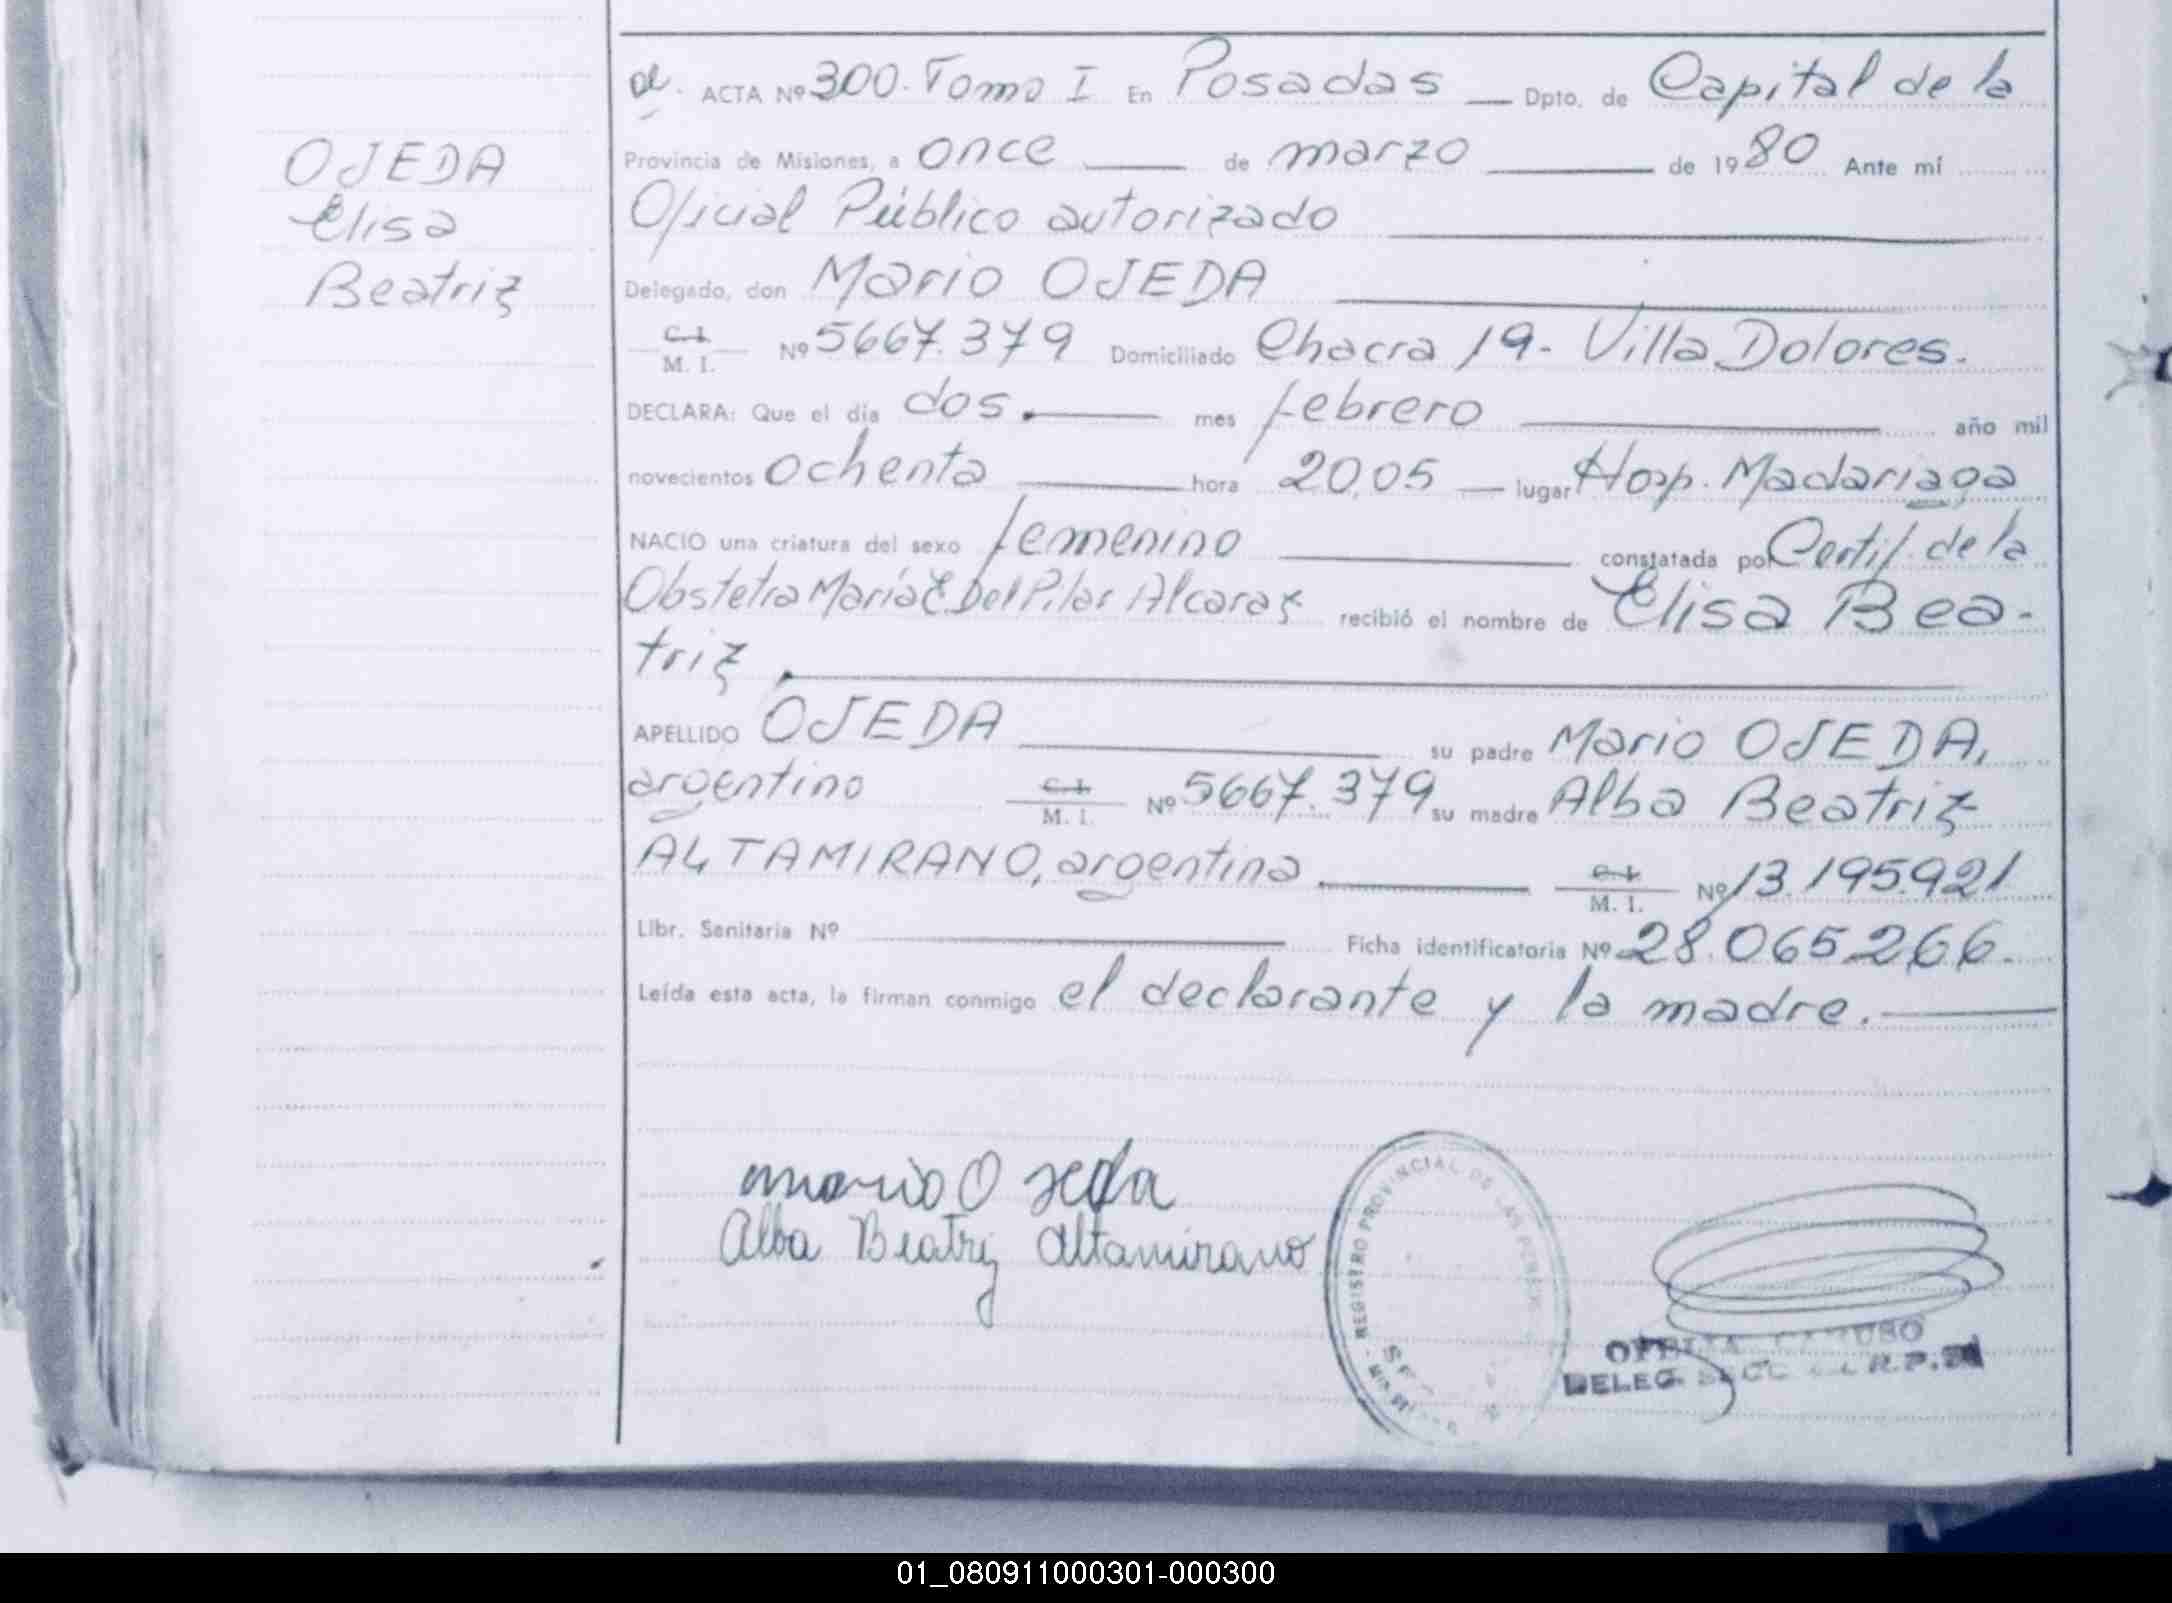 OJEDA
Elisa
Beatriz
ACTA Nº 300. Tomo I En Posadas Dpto. de Capital de la
Provincia de Misiones, a once de marzo de 1980 Ante mí
Oficial Público autorizado
Delegado, don Mario OJEDA
C. I.
M. I. Nº 5667.379 Domiciliado Chacra 19- Villa Dolores.
DECLARA: Que el día dos. mes febrero año mil
novecientos ochenta hora 20,05 lugar Hosp. Madariaga
NACIO una criatura del sexo femenino constatada por Certif. de la
Obstetra María E. Del Pilar Alcaraz recibió el nombre de Elisa Bea-
triz.
APELLIDO OJEDA su padre Mario OJEDA,
argentino C. I. M. I. Nº 5667.379 su madre Alba Beatriz
ALTAMIRANO, argentina C. I. M. I. Nº 13.195.921
Libr. Sanitaria Nº Ficha identificatoria Nº 28.065.266.
Leída esta acta, la firman conmigo el declarante y la madre.
mario Ojeda
Alba Beatriz Altamirano
REGISTRO PROVINCIAL DE LAS
OFELIA CARUSO
DELEG. SECC. R.P.
01_080911000301-000300